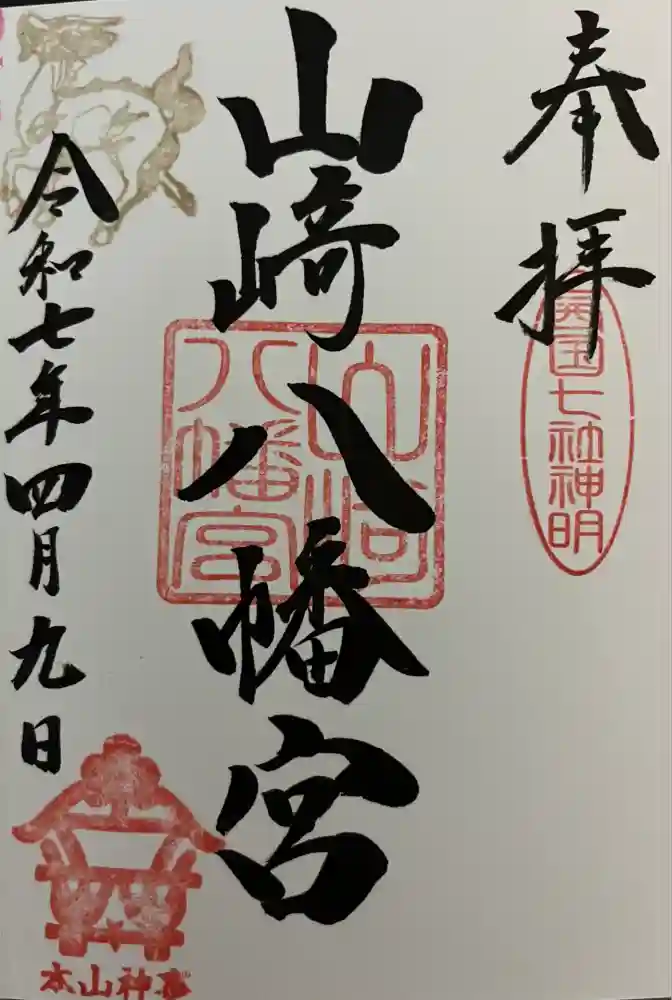 奉拝
國七社神明
山崎八幡宮
山崎八幡宮
令和七年四月九日
本山神事